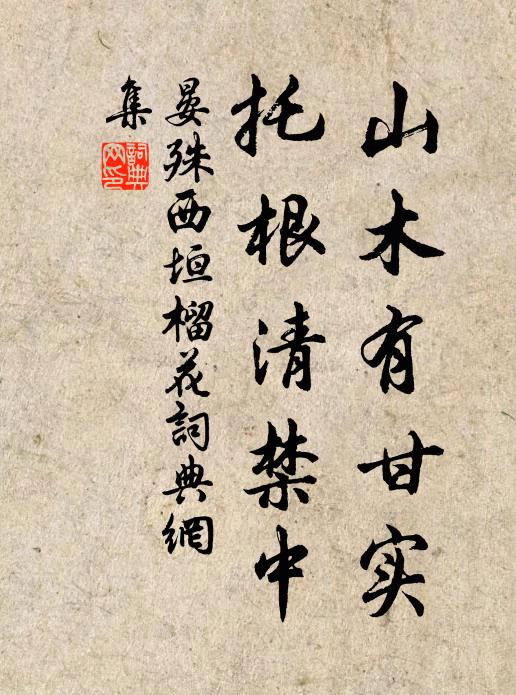 山木有甘实
托根清禁中
晏殊西垣榴花詞典網
集
詞典
网印